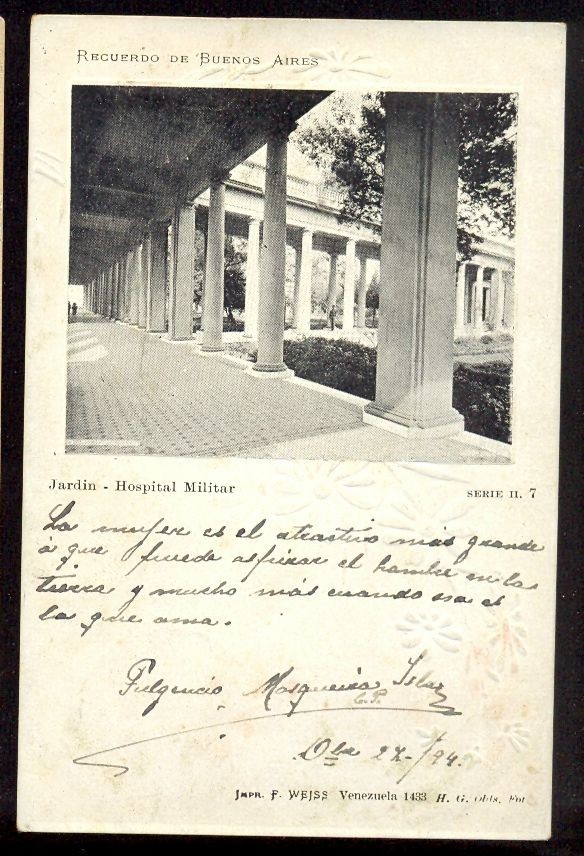 RECUERDO DE BUENOS AIRES
Jardin - Hospital Militar
SERIE II. 7
La mujer es el atractivo más grande
á que puede aspirar el hombre en la
tierra y mucho más cuando esa es
la que ama.
Fulgencio Mosqueira Islas
27-/
IMPR. F. WEISS Venezuela 1433 H. G. Olds. Fot